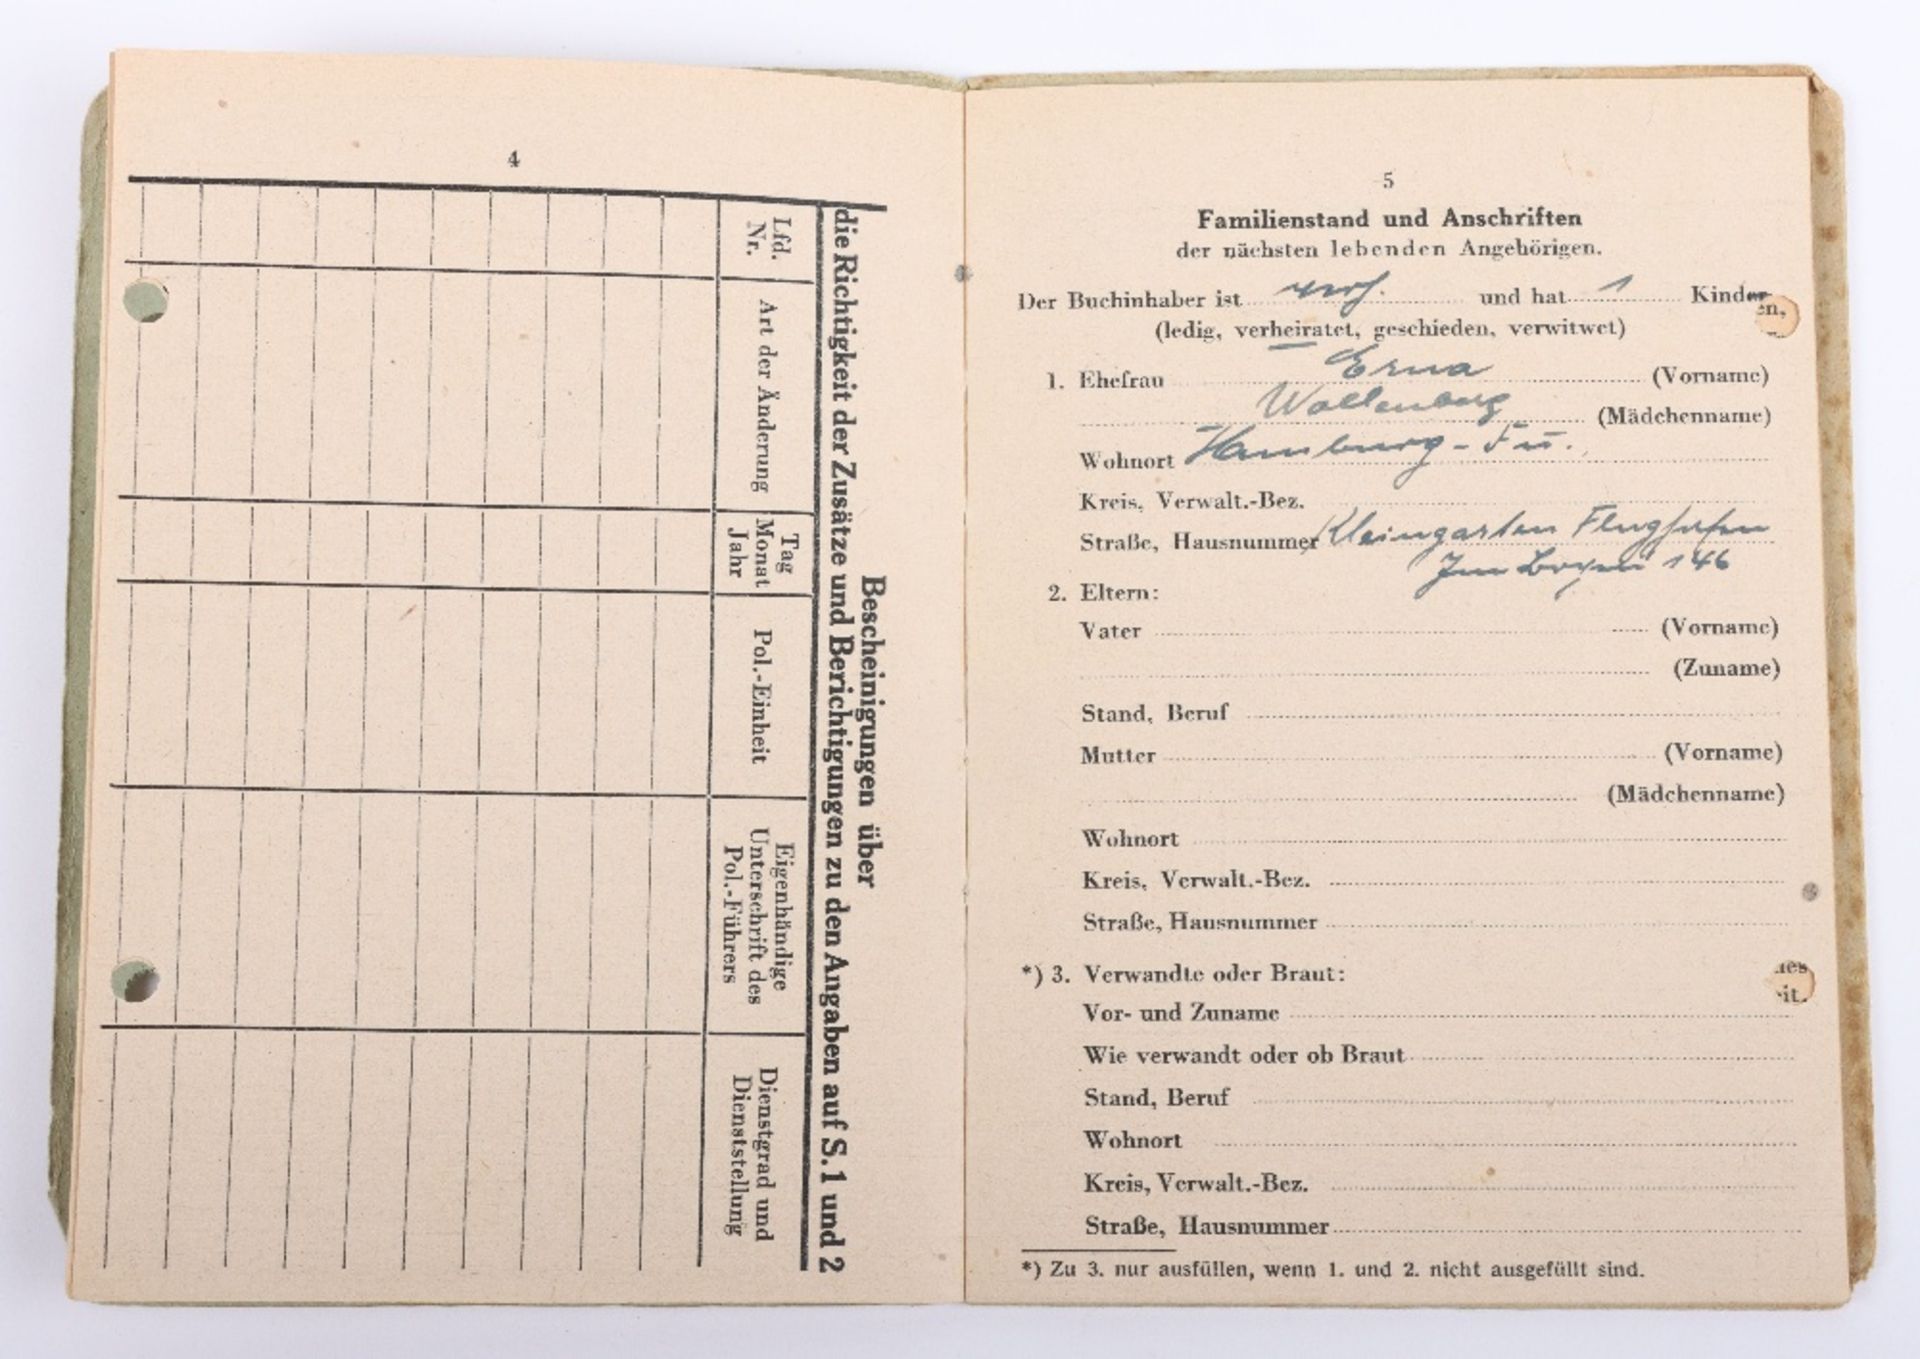 4
Bescheinigungen über
die Richtigkeit der Zusätze und Berichtigungen zu den Angaben auf S. 1 und 2
Lfd.
Nr.
Art der Änderung
Tag
Monat
Jahr
Pol.-Einheit
Eigenhändige
Unterschrift des
Pol.-Führers
Dienstgrad und
Dienststellung
5
Familienstand und Anschriften
der nächsten lebenden Angehörigen.
Der Buchinhaber ist verh. und hat 1 Kinder
en,
(ledig, verheiratet, geschieden, verwitwet)
1. Ehefrau Erna (Vorname)
Wallenberg (Mädchenname)
Wohnort Hamburg - Fu.
Kreis, Verwalt.-Bez.
Straße, Hausnummer Kleingarten Flughafen
146
2. Eltern:
Vater (Vorname)
(Zuname)
Stand, Beruf
Mutter (Vorname)
(Mädchenname)
Wohnort
Kreis, Verwalt.-Bez.
Straße, Hausnummer
*) 3. Verwandte oder Braut:
Vor- und Zuname
Wie verwandt oder ob Braut
Stand, Beruf
Wohnort
Kreis, Verwalt.-Bez.
Straße, Hausnummer
*) Zu 3. nur ausfüllen, wenn 1. und 2. nicht ausgefüllt sind.